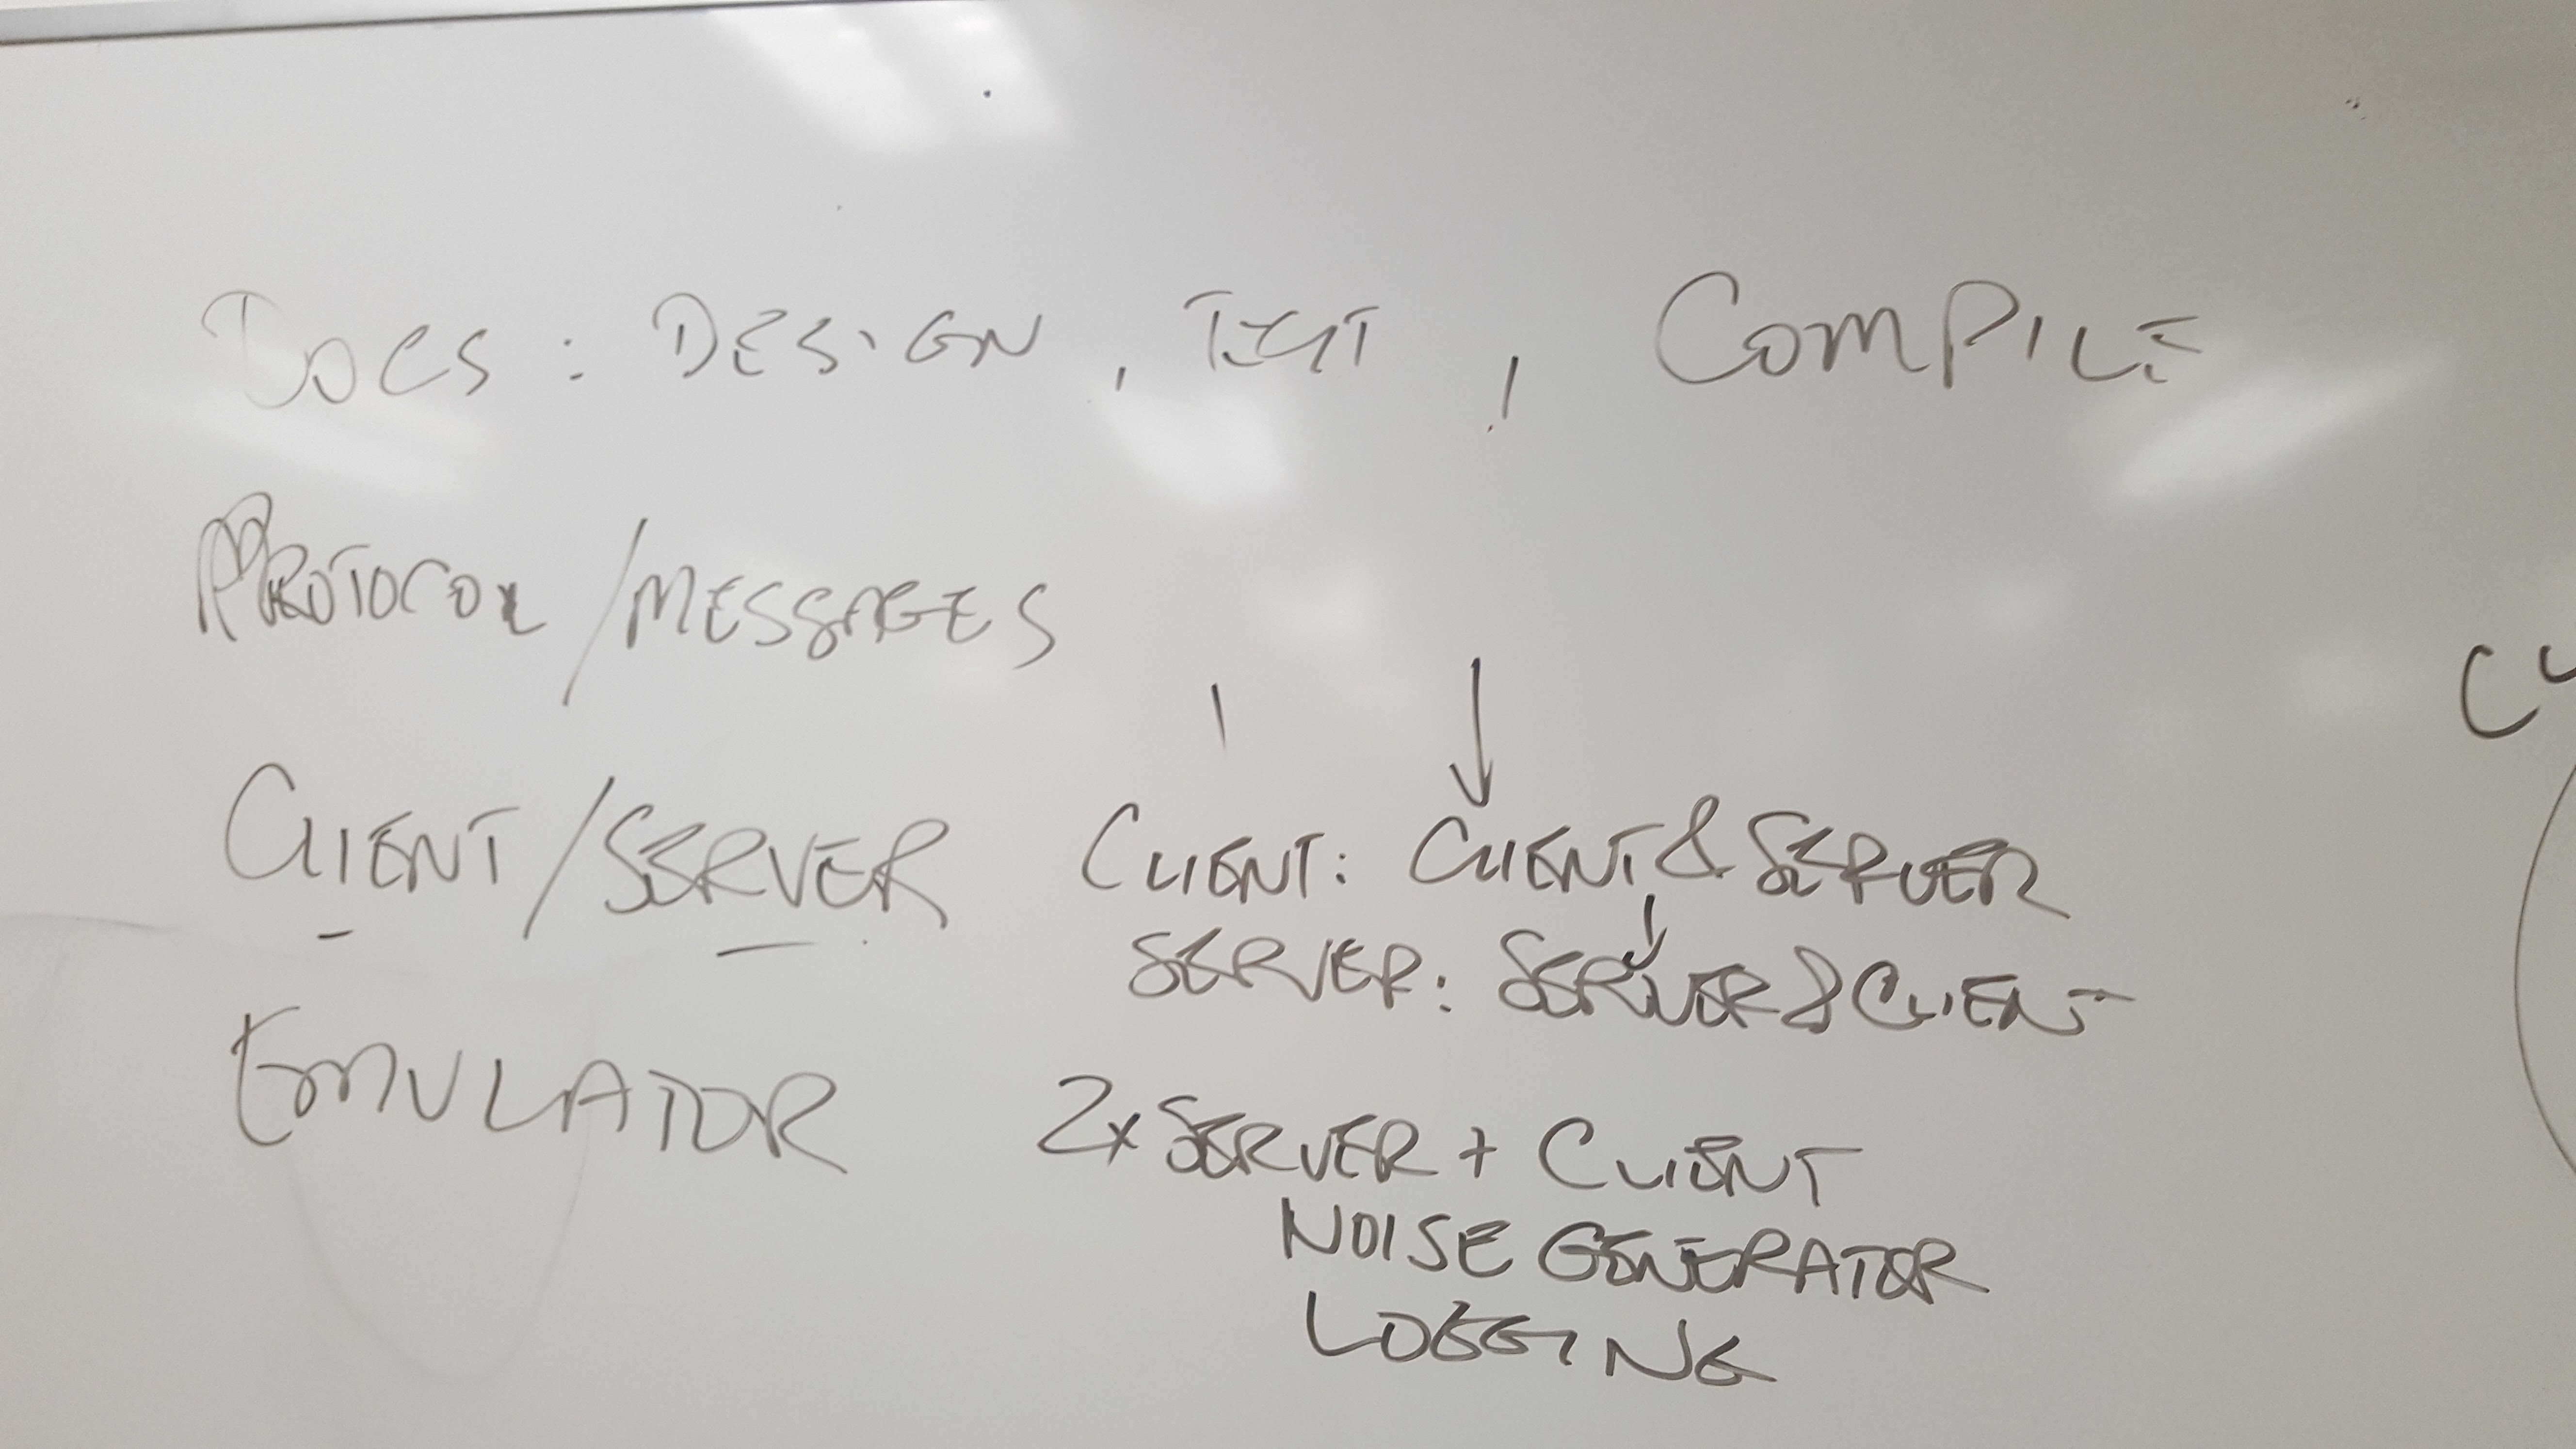 DOCS: DESIGN, TEST, COMPILE
PROTOCOL/MESSAGES
CLIENT/SERVER
CLIENT: CLIENT & SERVER
SERVER: SERVER & CLIENT
EMULATOR
2x SERVER + CLIENT
NOISE GENERATOR
LOGGING